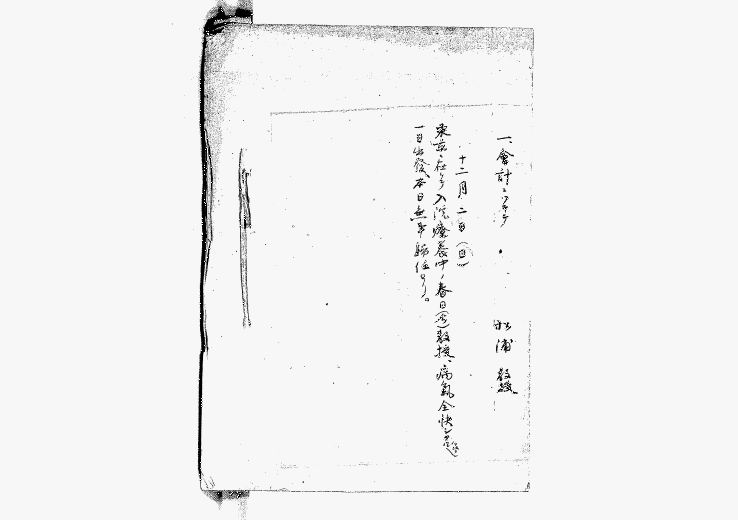 一、會計ニツキテ
松浦 教授
十二月二日(日)
東京ニ在リテ入院療養中ノ春日(重)教授、病氣全快
一日出發本日無事歸任セリ。